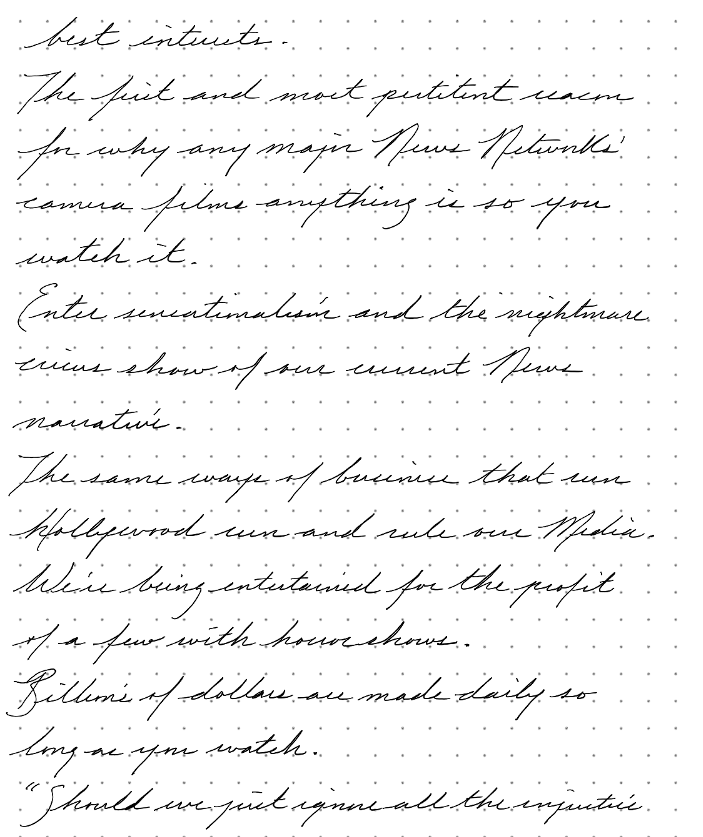 best interests.
The first and most pertitent reason
for why any major News Networks'
camera films anything is so you
watch it.
Enter sensationalism and the nightmare
circus show of our current News
narrative.
The same ways of business that run
Hollywood run and rule our Media.
We're being entertained for the profit
of a few with horror shows.
Billions of dollars are made daily so
long as you watch.
"Should we just ignore all the injustice